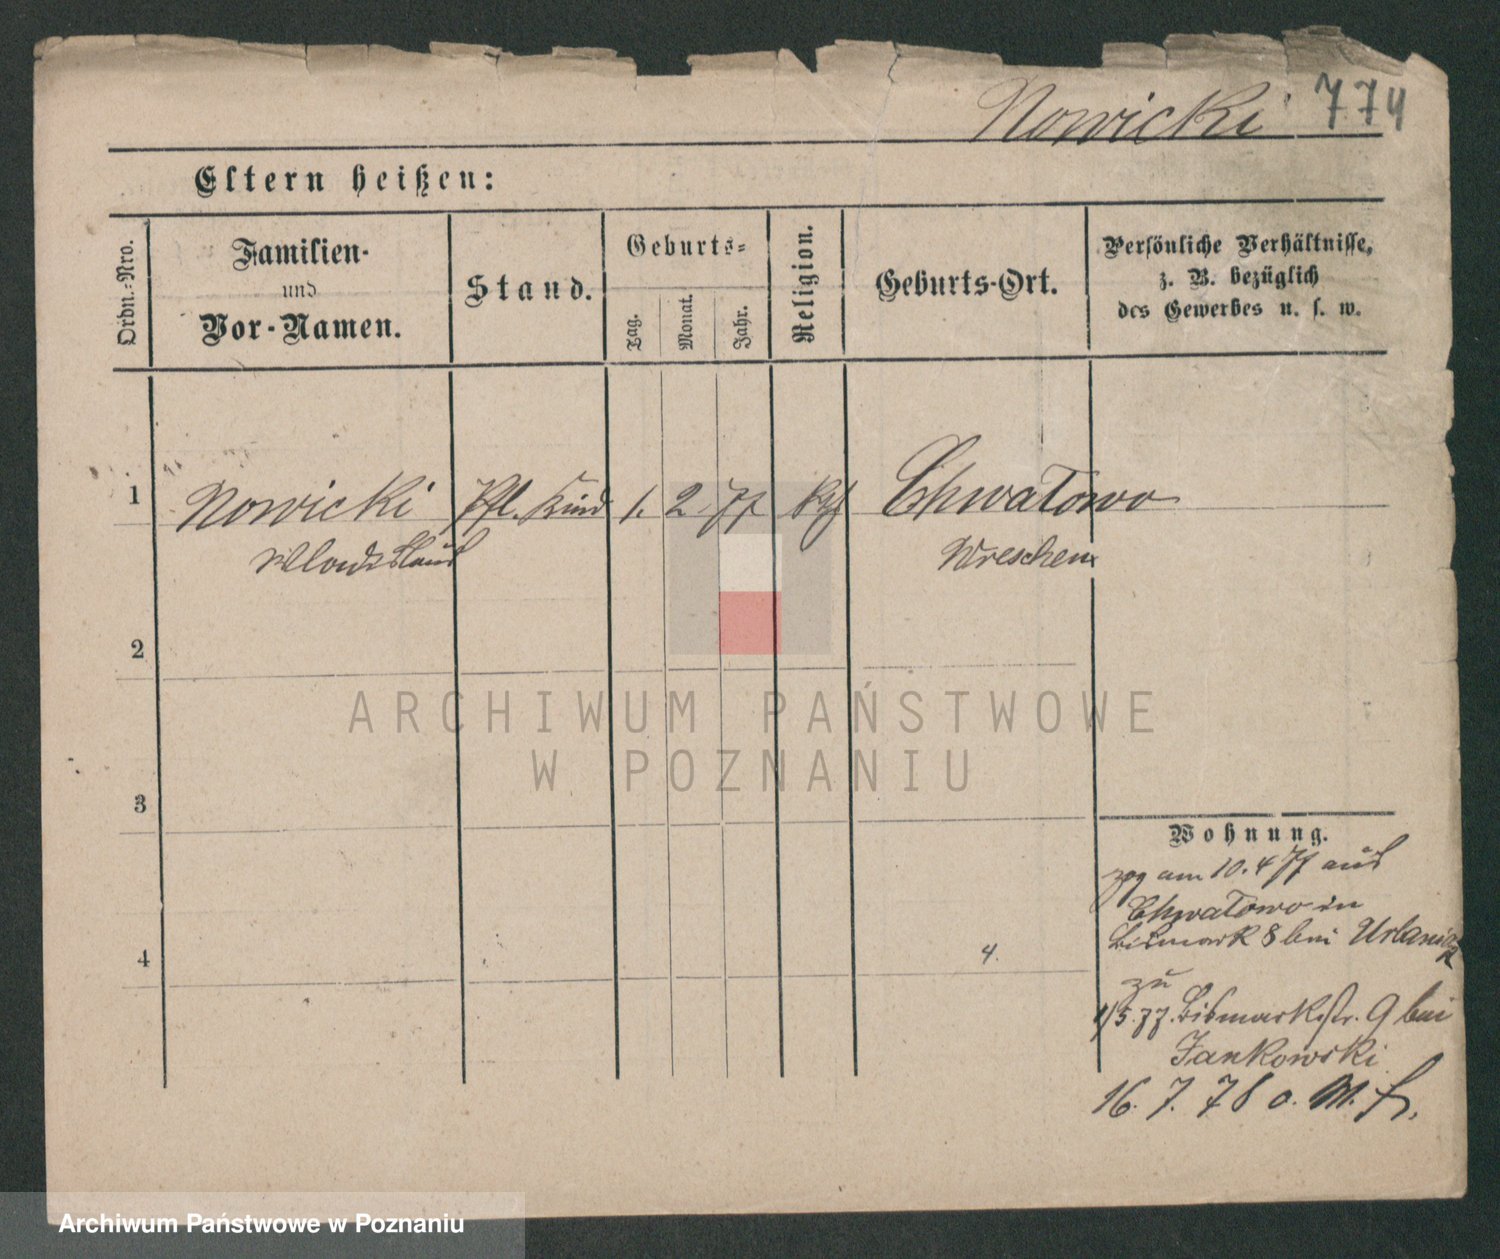 Nowicki 774
Eltern heißen:
Ordn.-Nro.
Familien-
und
Vor-Namen.
Stand.
Geburts-
Tag.
Monat.
Jahr.
Religion.
Geburts-Ort.
Persönliche Verhältnisse,
z. B. bezüglich
des Gewerbes u. s. w.
1 Nowicki Pfl. Kind 1. 2 77 Chwatowo
Wreschen
2
3
4 4.
Wohnung.
zog am 10. 4 77 aus
Chwatowo in
Bismark 8 bei Urbaniak
zu
1/5. 77. Bismarkstr. 9 bei
Jankowski
16. 7. 78
ARCHIWUM PAŃSTWOWE
W POZNANIU
Archiwum Państwowe w Poznaniu